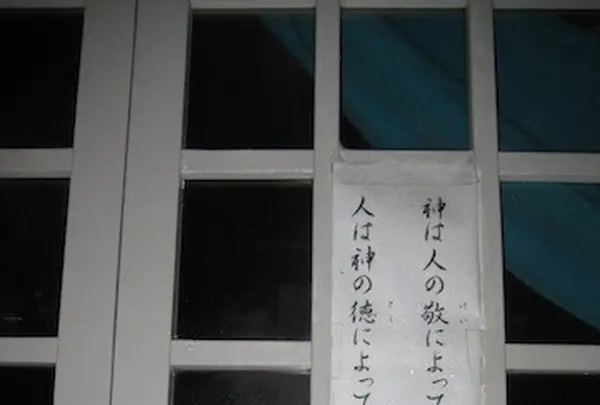 神は人の敬によって
人は神の徳によって